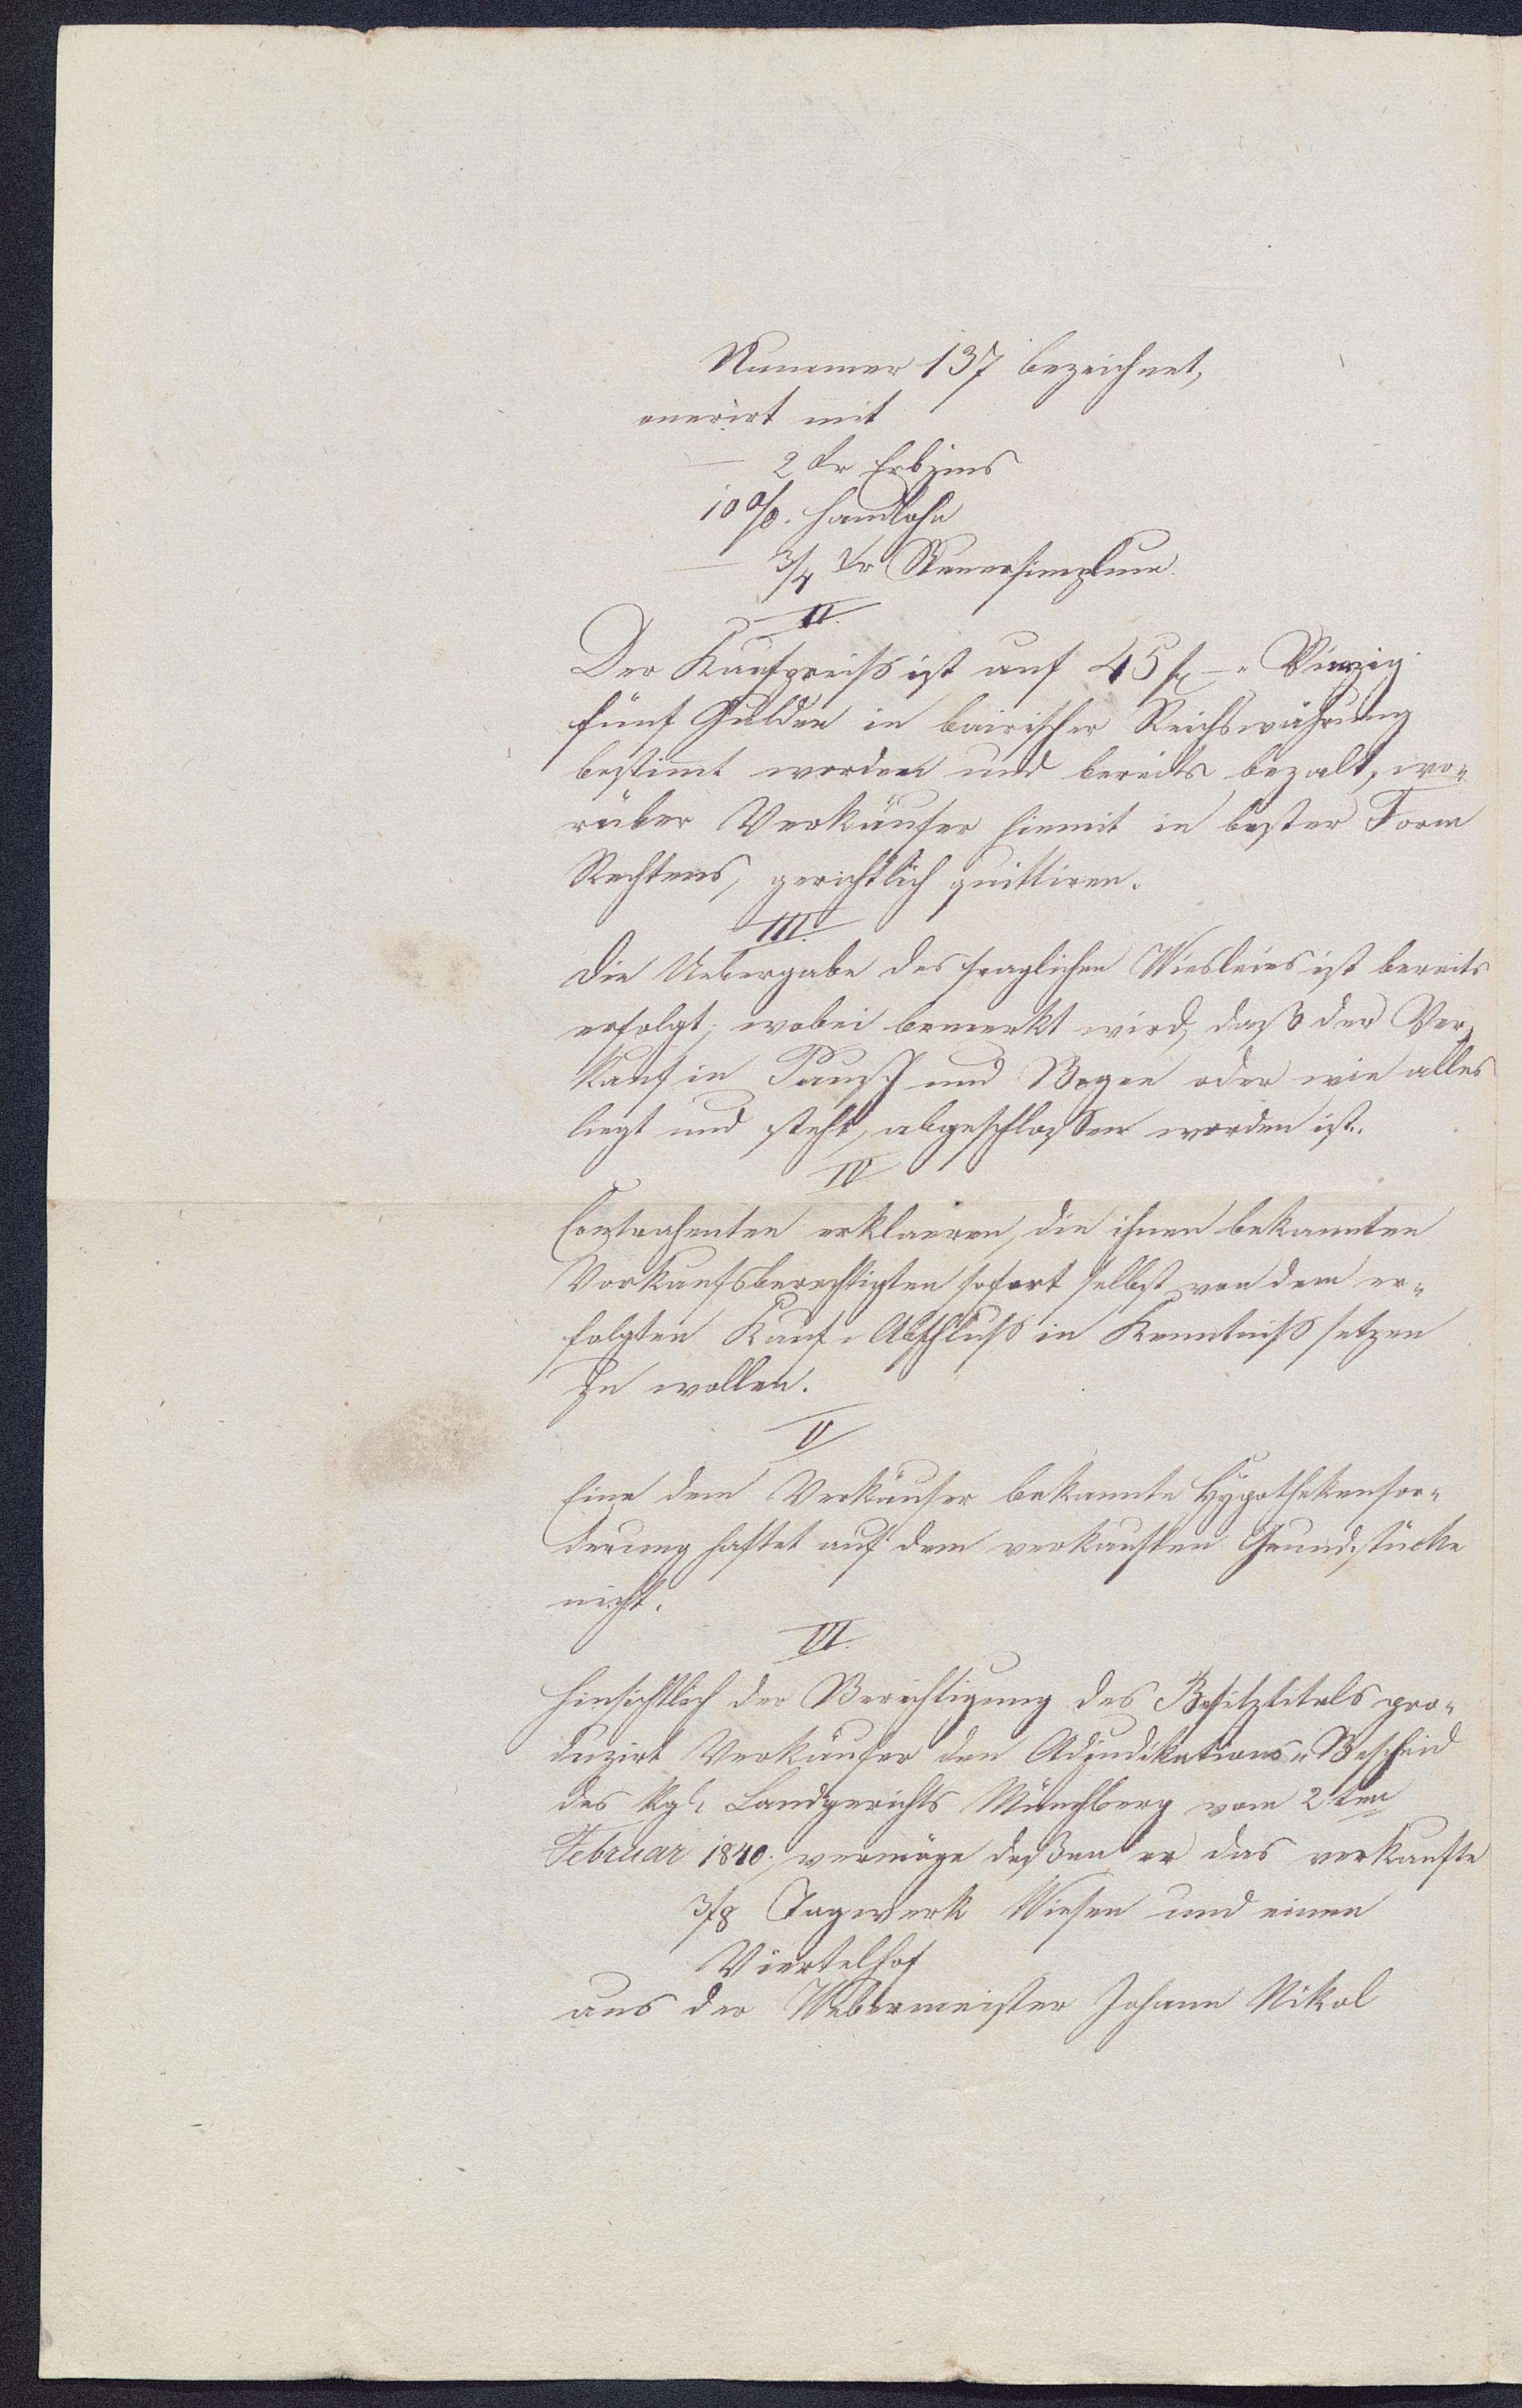 Nummer 137 bezeichnet,
onerirt mit
— 2 kr Erbzins
10 %. Handlohn
— 3/4 kr Steuersimplum.
II.
Der Kaufpreiß ist auf 45 f — „ Vierzig
fünf Gulden in bairischer Reichswährung
bestimt worden und bereits bezalt, wo-
rüber Verkäufer hiemit in bester Form
Rechtens, gerichtlich quittiren.
III.
Die Uebergabe des fraglichen Wiesleins ist bereits
erfolgt, wobei bemerkt wird, daß der Ver-
kauf in Pausch und Bogen oder wie alles
liegt und steht, abgeschlossen worden ist.
IV
Contrahenten erklaeren, die ihnen bekannten
Vorkaufsberechtigten sofort selbst von dem er-
folgten Kauf-Abschluß in Kenntniß setzen
zu wollen.
V
Eine dem Verkäufer bekannte Hypothekenfor-
derung haftet auf dem verkauften Grundstücke
nicht.
VI.
Hinsichtlich der Berichtigung des Besitztitels pro-
duzirt Verkäufer den Adjudikations-Bescheid
des kgl. Landgerichts Münchberg vom 2ten
Februar 1840, vermöge deßen er das verkaufte
3/8 Tagwerk Wiesen und einen
Viertelhof
aus der Webermeister Johann Nikol